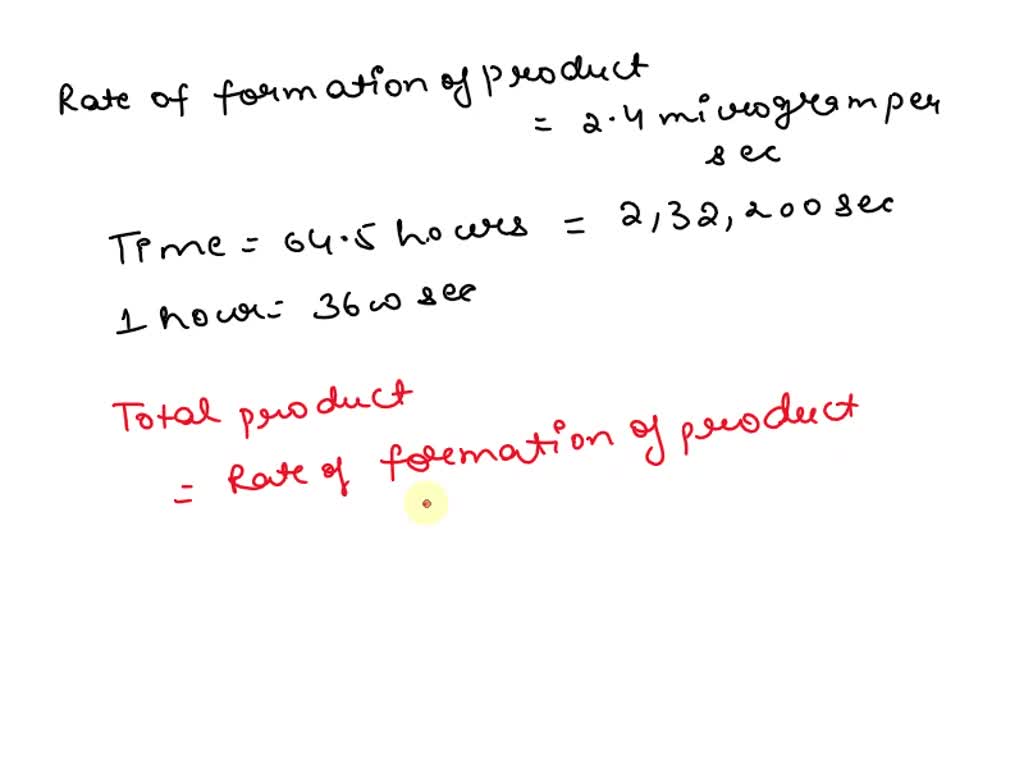 Rate of formation of product
= 2.4 microgram per
sec
Time = 64.5 hours = 2,32,200 sec
1 hour = 3600 sec
Total product
= Rate of formation of product